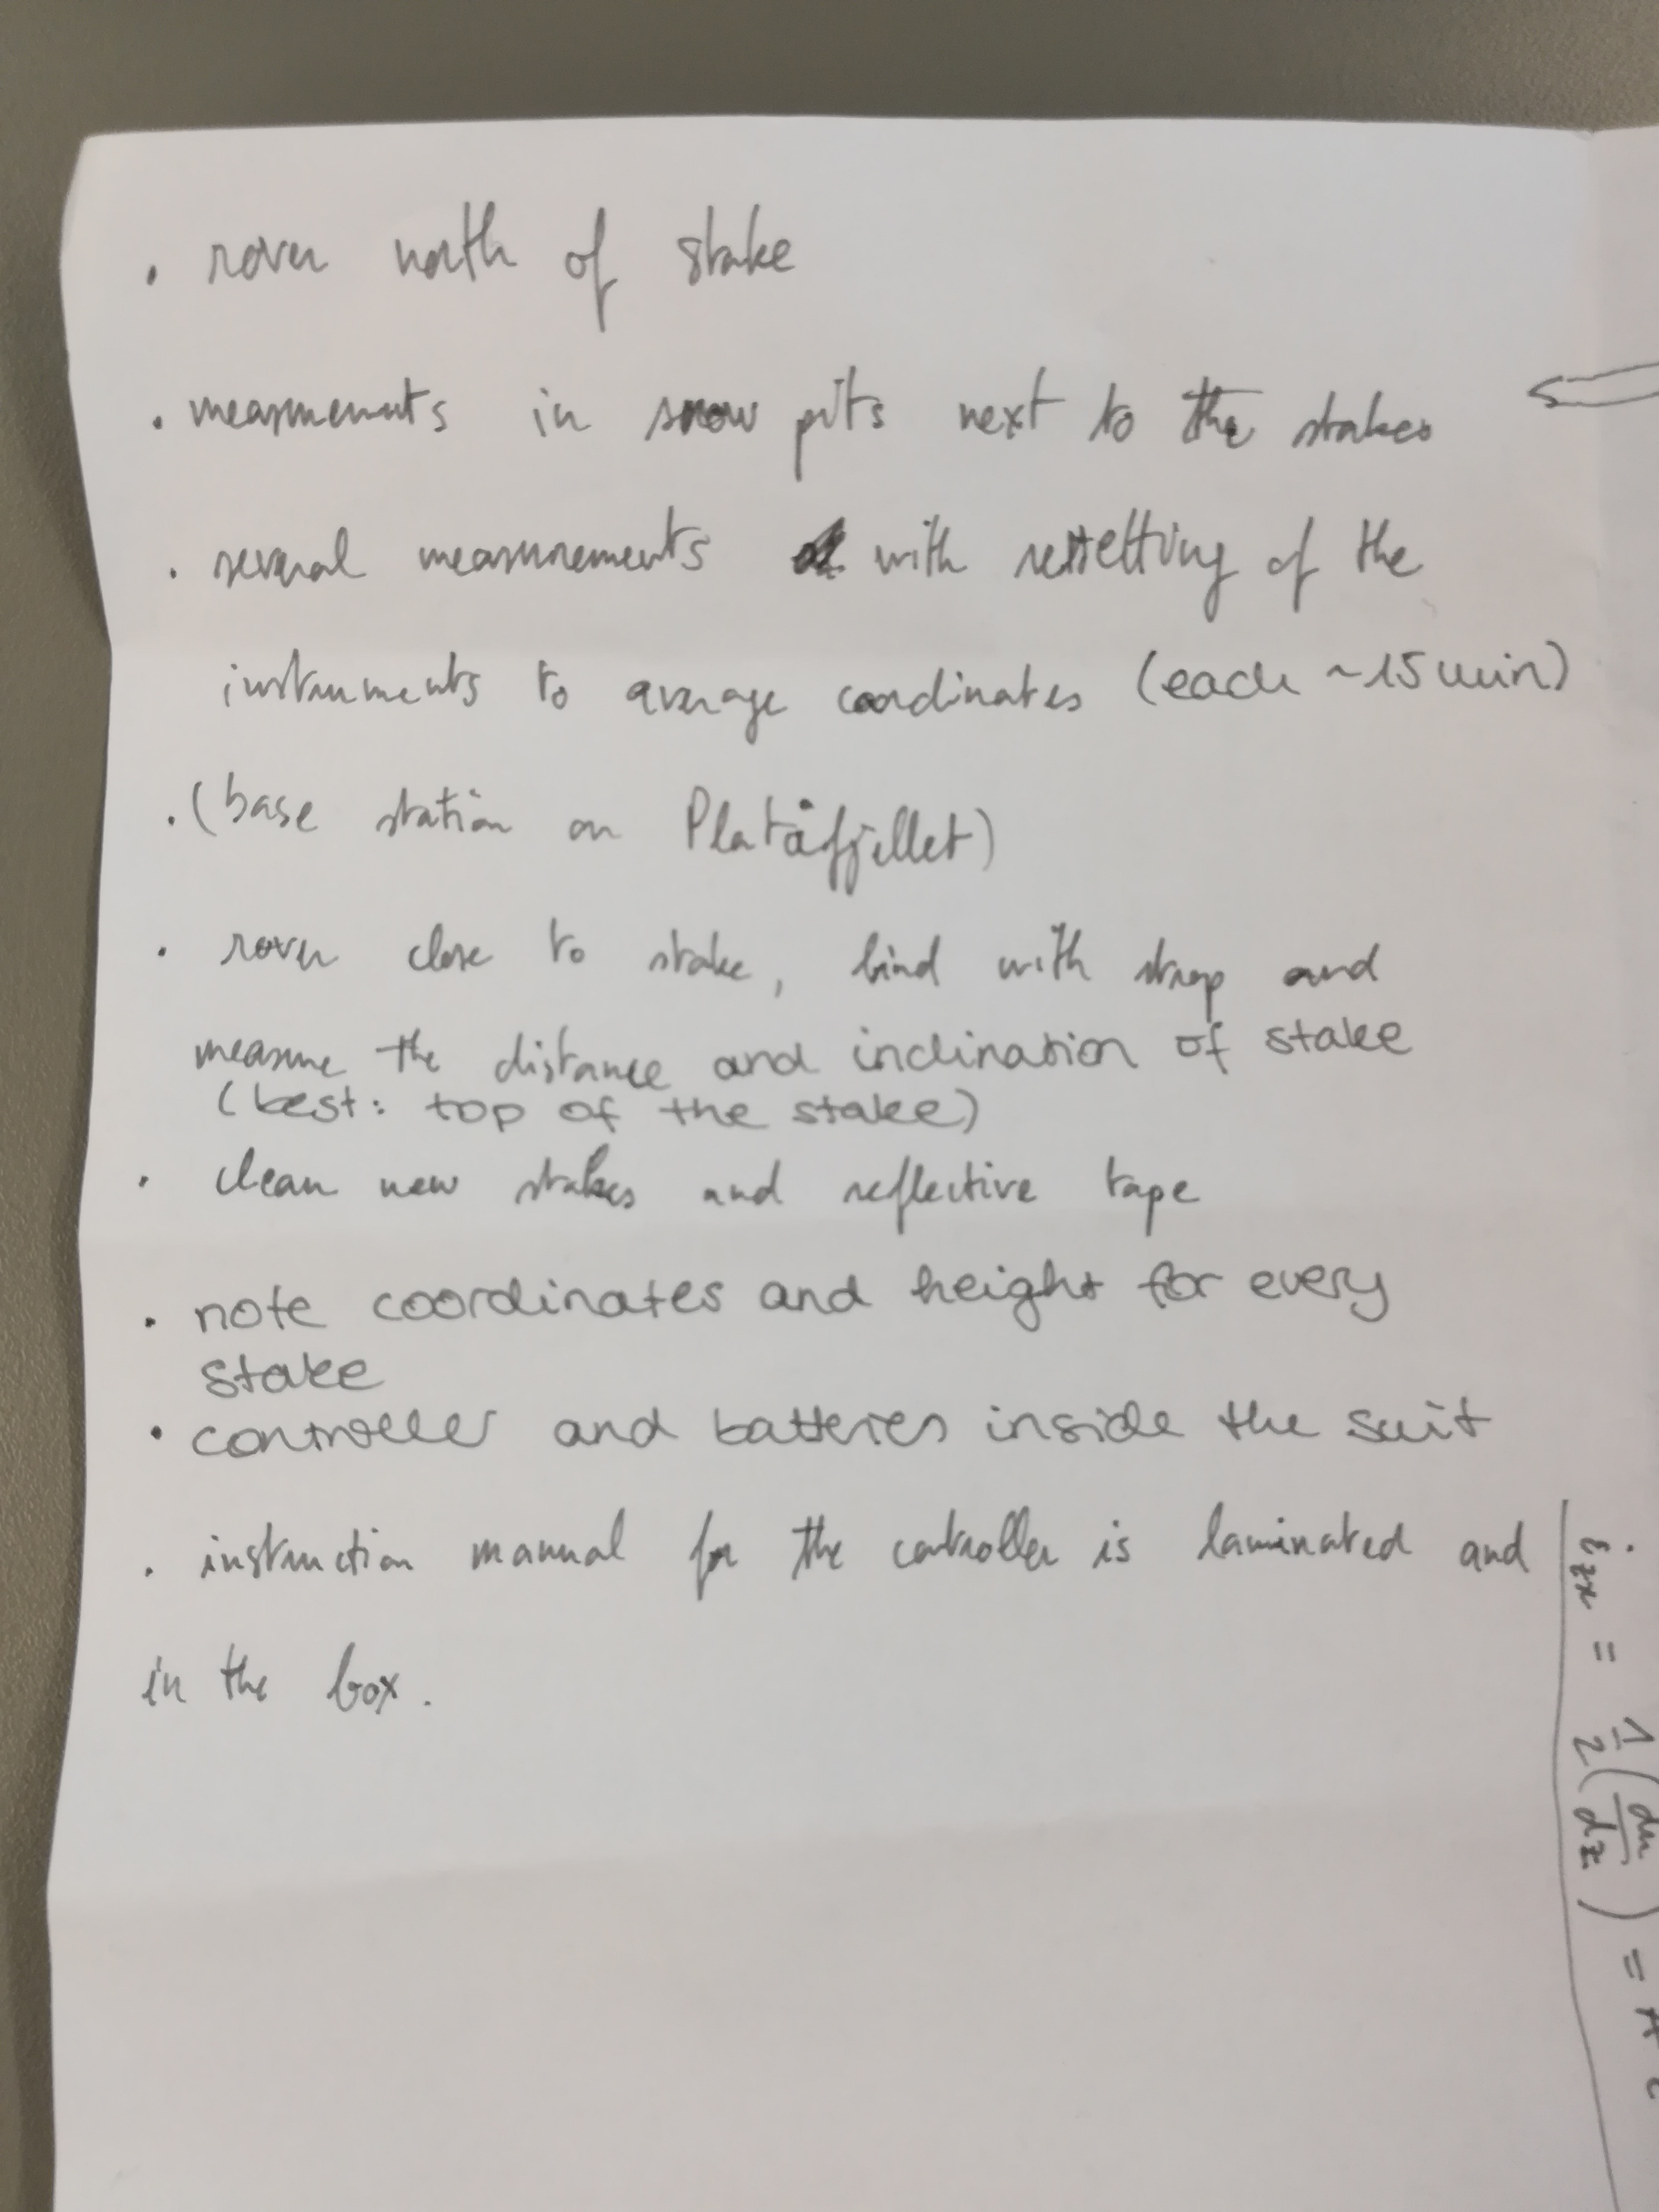 . rover north of stake
. measurments in snow pits next to the stakes
. several measurements with resetting of the
instruments to average coordinates (each ~15 min)
. (base station on Platåfjellet)
. rover close to stake, bind with strap and
measure the distance and inclination of stake
(best: top of the stake)
. clean new stakes and reflective tape
. note coordinates and height for every
stake
• controller and batteries inside the suit
. instruction manual for the controller is laminated and
in the box.
= 1/2 (du/dz) =